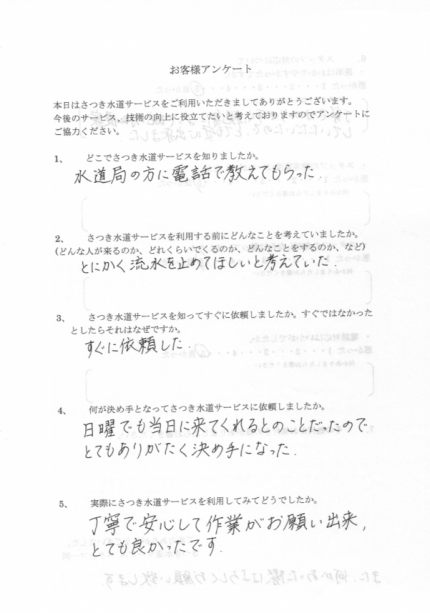 お客様アンケート
本日はさつき水道サービスをご利用いただきましてありがとうございます。
今後のサービス、技術の向上に役立てたいと考えておりますのでアンケートに
ご協力ください。
1、 どこでさつき水道サービスを知りましたか。
水道局の方に電話で教えてもらった.
2、 さつき水道サービスを利用する前にどんなことを考えていましたか。
(どんな人が来るのか、どれくらいでくるのか、どんなことをするのか、など)
とにかく流水を止めてほしいと考えていた.
3、 さつき水道サービスを知ってすぐに依頼しましたか。すぐではなかった
としたらそれはなぜですか。
すぐに依頼した.
4、 何が決め手となってさつき水道サービスに依頼しましたか。
日曜でも当日に来てくれるとのことだったので
とてもありがたく決め手になった.
5、 実際にさつき水道サービスを利用してみてどうでしたか。
丁寧で安心して作業がお願い出来,
とても良かったです.